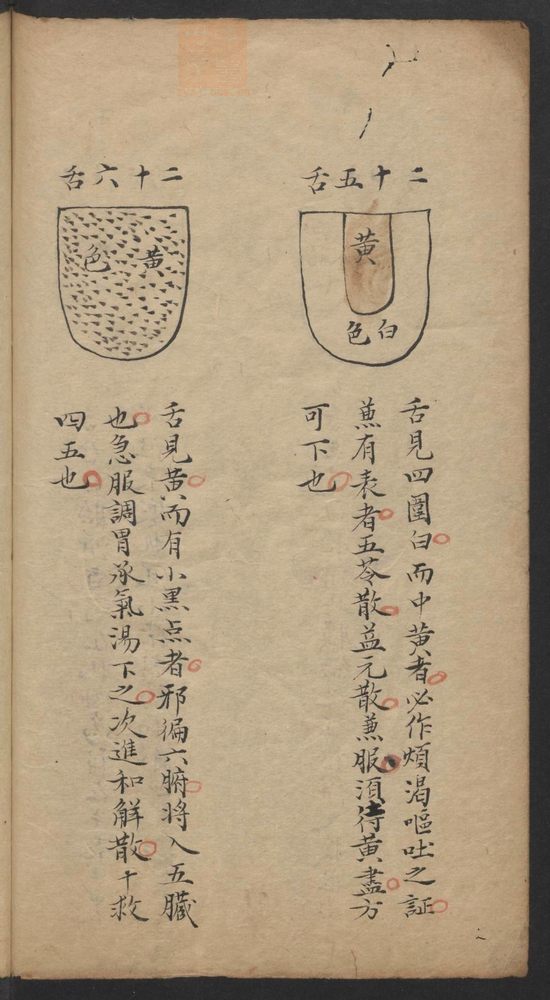 二十五舌
黄
白色
舌見四圍白而中黄者必作煩渴嘔吐之証
蕉有表者五苓散益元散蕉服須待黄盡方
可下也
二十六舌
黄色
舌見黄而有小黒点者邪徧六腑将入五臟
也急服調胃承氣湯下之次進和解散十救
四五也